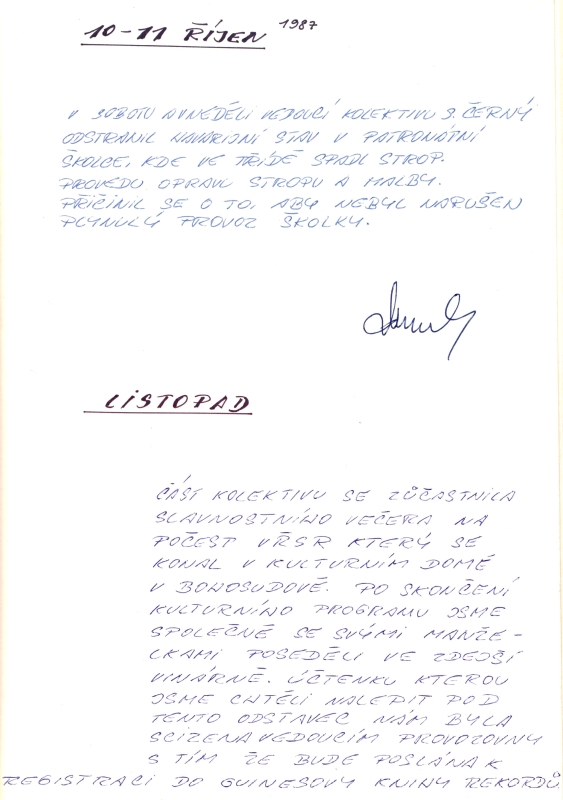 10-11 ŘÍJEN 1987
V SOBOTU A V NEDĚLI VEDOUCÍ KOLEKTIVU S. ČERNÝ
ODSTRANIL HAVARIJNÍ STAV V PATRONÁTNÍ
ŠKOLCE, KDE VE TŘÍDĚ SPADL STROP.
PROVEDL OPRAVU STROPU A MALBY.
PŘIČINIL SE O TO, ABY NEBYL NARUŠEN
PLYNULÝ PROVOZ ŠKOLKY.
LISTOPAD
ČÁST KOLEKTIVU SE ZŮČASTNILA
SLAVNOSTNÍHO VEČERA NA
POČEST VŘSR KTERÝ SE
KONAL V KULTURNÍM DOMĚ
V BOHOSUDOVĚ. PO SKONČENÍ
KULTURNÍHO PROGRAMU JSME
SPOLEČNĚ SE SVÝMI MANŽE-
LKAMI POSEDĚLI VE ZDEJŠÍ
VINÁRNĚ. ÚČTENKU KTEROU
JSME CHTĚLI NALEPIT POD
TENTO ODSTAVEC NÁM BYLA
SCIZENA VEDOUCÍM PROVOZOVNY
S TÍM ŽE BUDE POSLÁNA K
REGISTRACI DO GUINESOVY KNIHY REKORDŮ